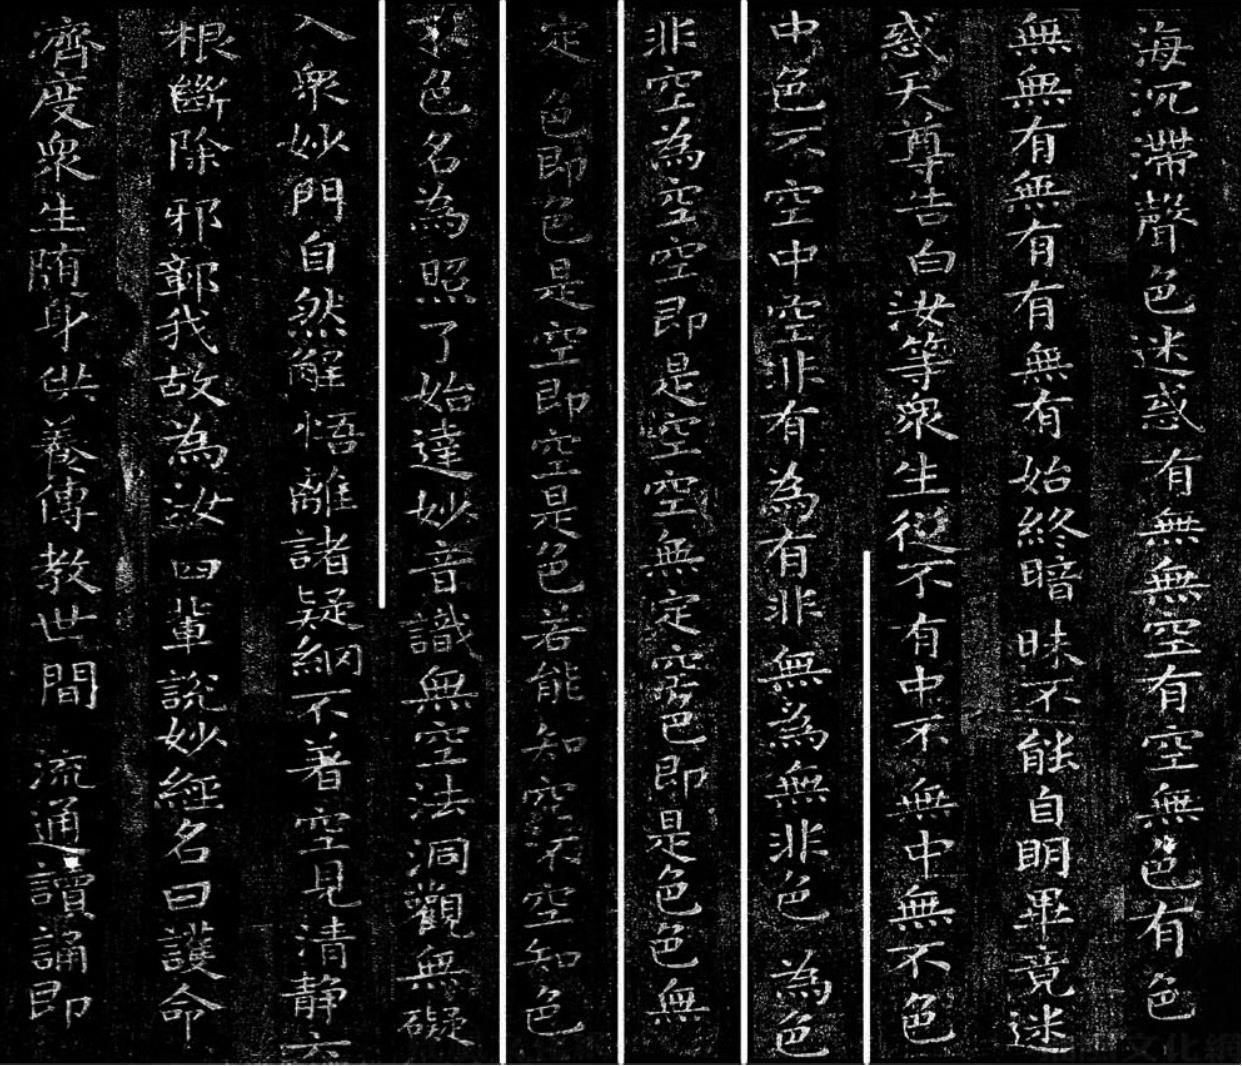 海沉滯聲色迷惑有無無空有空無色有色
無無有無有有無有始終暗昧不能自明畢竟迷
惑天尊告白汝等衆生從不有中不無中無不色
中色不空中空非有為有非無為無非色為色
非空為空空即是空空無定空色即是色色無
定色即色是空即空是色若能知空不空知色
不色名為照了始達妙音識無空法洞觀無礙
入衆妙門自然解悟離諸疑網不著空見清静六
根斷除邪鄣我故為汝四輩說妙經名曰護命
濟度衆生随身供養傳教世間 流通讀誦即